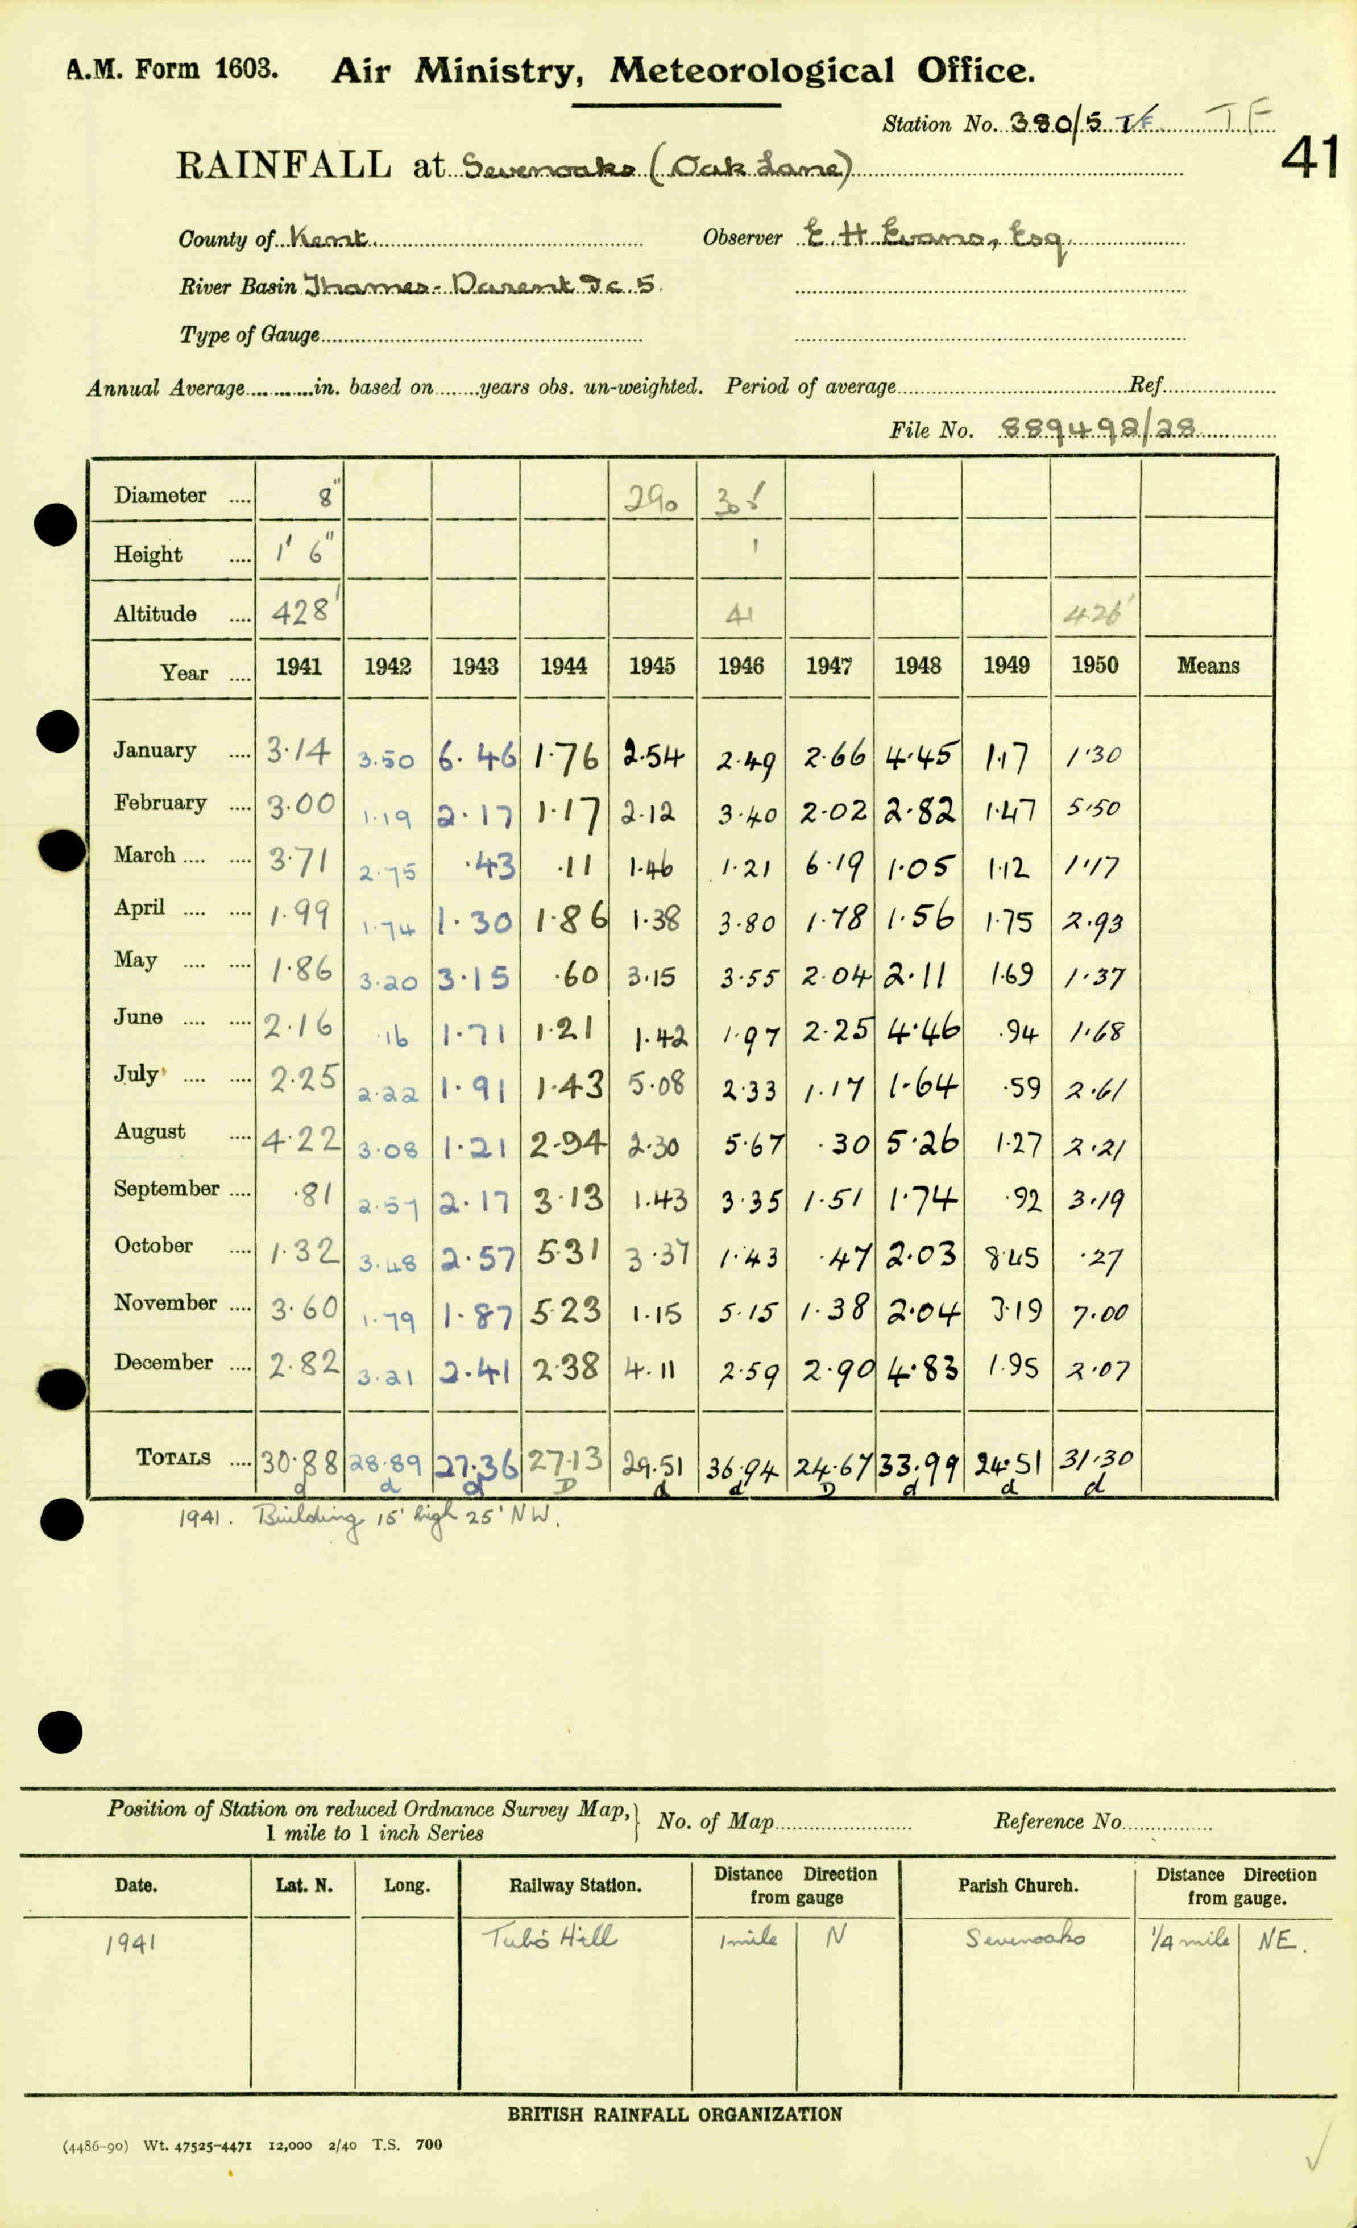 A.M. Form 1603. Air Ministry, Meteorological Office.
Station No. 380/5 TF TF
41
RAINFALL at Sevenoaks (Oak Lane)
County of Kent Observer E. H. Evans, Esq.
River Basin Thames - Darent Ic 5.
Type of Gauge
Annual Average in. based on years obs. un-weighted. Period of average Ref.
File No. 889492/28
Diameter .... 8" 290
Height .... 1' 6" 1
Altitude .... 428' 41 426'
Year .... 1941 1942 1943 1944 1945 1946 1947 1948 1949 1950 Means
January .... 3.14 3.50 6.46 1.76 2.54 2.49 2.66 4.45 1.17 1.30
February .... 3.00 1.19 2.17 1.17 2.12 3.40 2.02 2.82 1.47 5.50
March .... .... 3.71 2.75 .43 .11 1.46 1.21 6.19 1.05 1.12 1.17
April .... .... 1.99 1.74 1.30 1.86 1.38 3.80 1.78 1.56 1.75 2.93
May .... .... 1.86 3.20 3.15 .60 3.15 3.55 2.04 2.11 1.69 1.37
June .... .... 2.16 .16 1.71 1.21 1.42 1.97 2.25 4.46 .94 1.68
July .... .... 2.25 2.22 1.91 1.43 5.08 2.33 1.17 1.64 .59 2.61
August .... 4.22 3.08 1.21 2.94 2.30 5.67 .30 5.26 1.27 2.21
September .... .81 2.57 2.17 3.13 1.43 3.35 1.51 1.74 .92 3.19
October .... 1.32 3.48 2.57 5.31 3.37 1.43 .47 2.03 8.45 .27
November .... 3.60 1.79 1.87 5.23 1.15 5.15 1.38 2.04 3.19 7.00
December .... 2.82 3.21 2.41 2.38 4.11 2.59 2.90 4.83 1.95 2.07
TOTALS .... 30.88 28.89 27.36 27.13 29.51 36.94 24.67 33.99 24.51 31.30
d d d D d d D d d d
1941. Building 15' high 25' NW.
Position of Station on reduced Ordnance Survey Map, 1 mile to 1 inch Series } No. of Map Reference No.
Date. Lat. N. Long. Railway Station. Distance from gauge Direction Parish Church. Distance Direction from gauge.
1941 Tubs Hill 1 mile N Sevenoaks 1/4 mile NE.
BRITISH RAINFALL ORGANIZATION
(4486-90) Wt. 47525-4471 12,000 2/40 T.S. 700